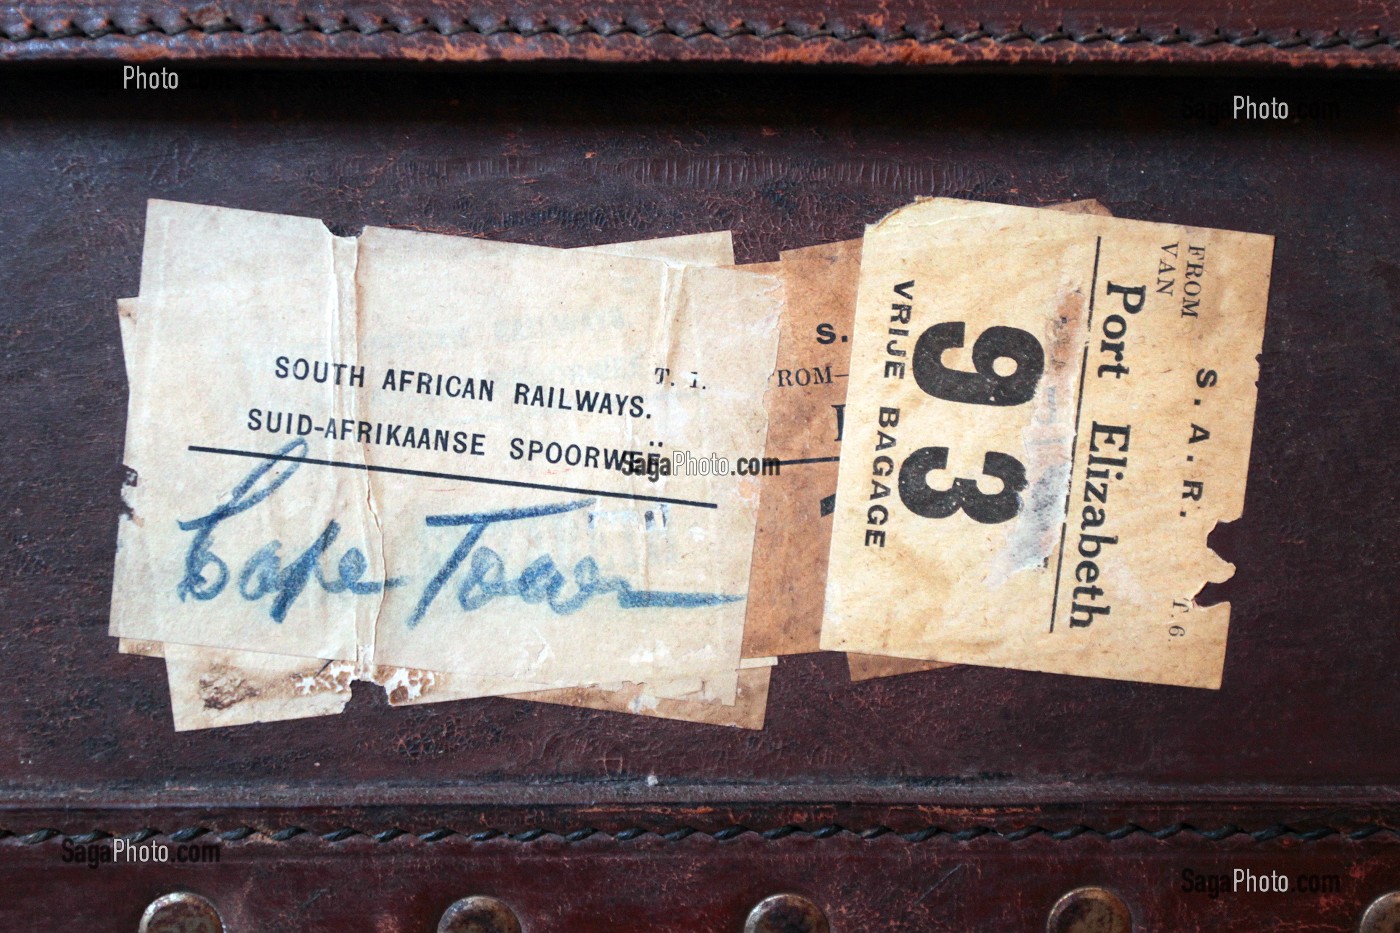 SOUTH AFRICAN RAILWAYS.
T. 1.
SUID-AFRIKAANSE SPOORWEË
Cape Town
S.
FROM
VAN
S. A. R.
T. 6.
Port Elizabeth
93
VRIJE BAGAGE
Photo
SagaPhoto.com
SagaPhoto.com
SagaPhoto.com
SagaPhoto.com